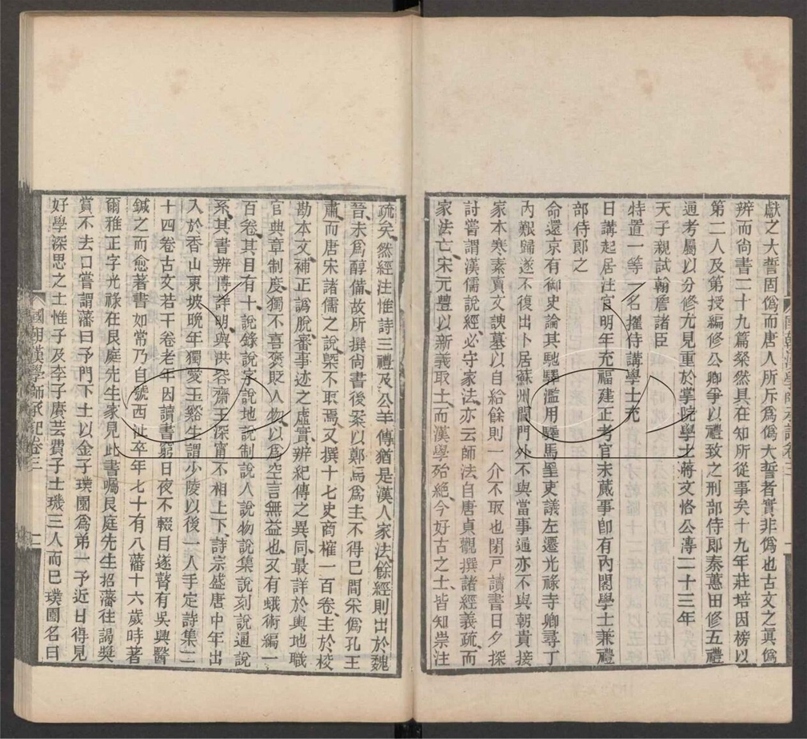 獻之大誓固僞而唐人所斥爲僞大誓者實非僞也古文之眞僞
辨而尚書二十九篇粲然具在知所從事矣十九年莊培因榜以
第二人及第授編修公卿爭以禮致之刑部侍郎秦蕙田修五禮
通考屬以分修尤見重於掌院學士蔣文恪公溥二十三年
天子親試翰詹諸臣
特置一等一名擢侍講學士充
日講起居注官明年充福建正考官未蕆事卽有內閣學士兼禮
部侍郎之
命還京有御史論其馳驛濫用驛馬吏議左遷光祿寺卿尋丁
內艱歸遂不復出卜居蘇州閶門外不與當事通亦不與朝貴接
家本寒素賣文諛墓以自給餘則一介不取也閉戸讀書日夕探
討嘗謂漢儒說經必守家法亦云師法自唐貞觀撰諸經義疏而
家法亡宋元豐以新義取士而漢學殆絕今好古之士皆知崇注
國朝漢學師承記卷三
疏矣然經注惟詩三禮及公羊傳猶是漢人家法餘經則出於魏
晉未爲醇備故所撰尚書後案以鄭馬爲主不得已閒采僞孔王
肅而唐宋諸儒之說槩不取焉又撰十七史商榷一百卷主於校
勘本文補正譌脫審事迹之虛實辨紀傳之異同最詳於輿地職
官典章制度獨不喜襃貶人物以爲空言無益也又有蛾術編一
百卷其目有十說錄說字說地說制說人說物說集說刻說通說
系其書辨博詳明與洪容齋王深甯不相上下詩宗盛唐中年出
入於香山東坡晚年獨愛玉谿生謂少陵以後一人手定詩集二
十四卷古文若干卷老年因讀書窮日夜不輟目遂瞽有吳興醫
鍼之而愈著書如常乃自號西沚卒年七十有八藩十六歲時著
爾雅正字光祿在艮庭先生家見此書囑艮庭先生招藩往謁獎
賞不去口嘗謂藩曰予門下士以金子璞園爲弟一予近日得見
好學深思之士惟子及李子賡芸費子士璣三人而已璞園名曰
國朝漢學師承記卷三
二